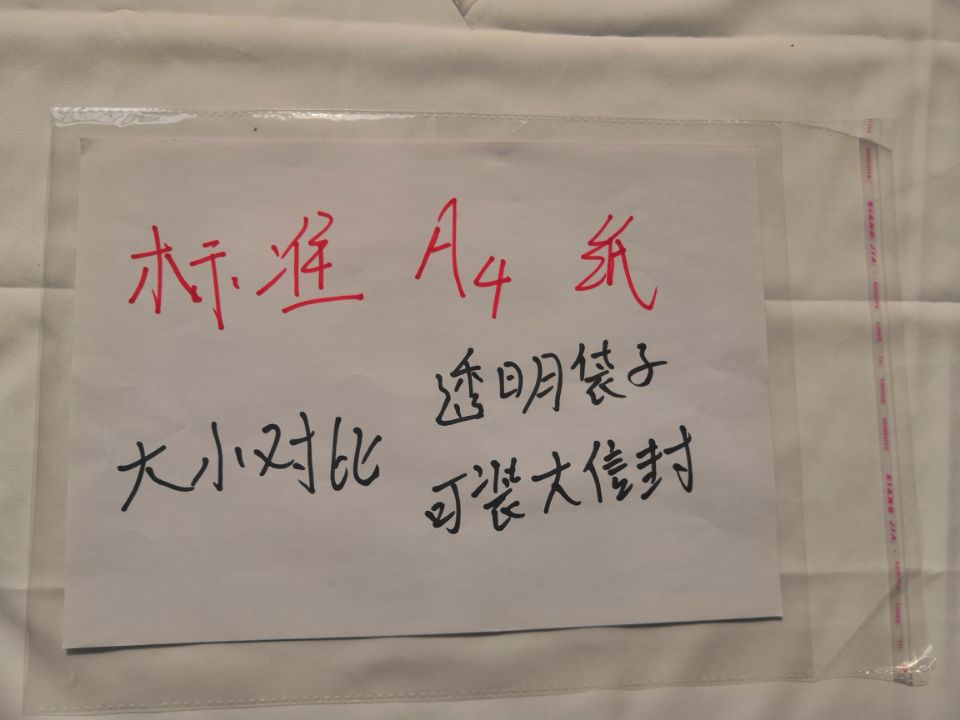 标准 A4 纸
大小对比
透明袋子
可装大信封
XIANG JIA
XIANG JIA